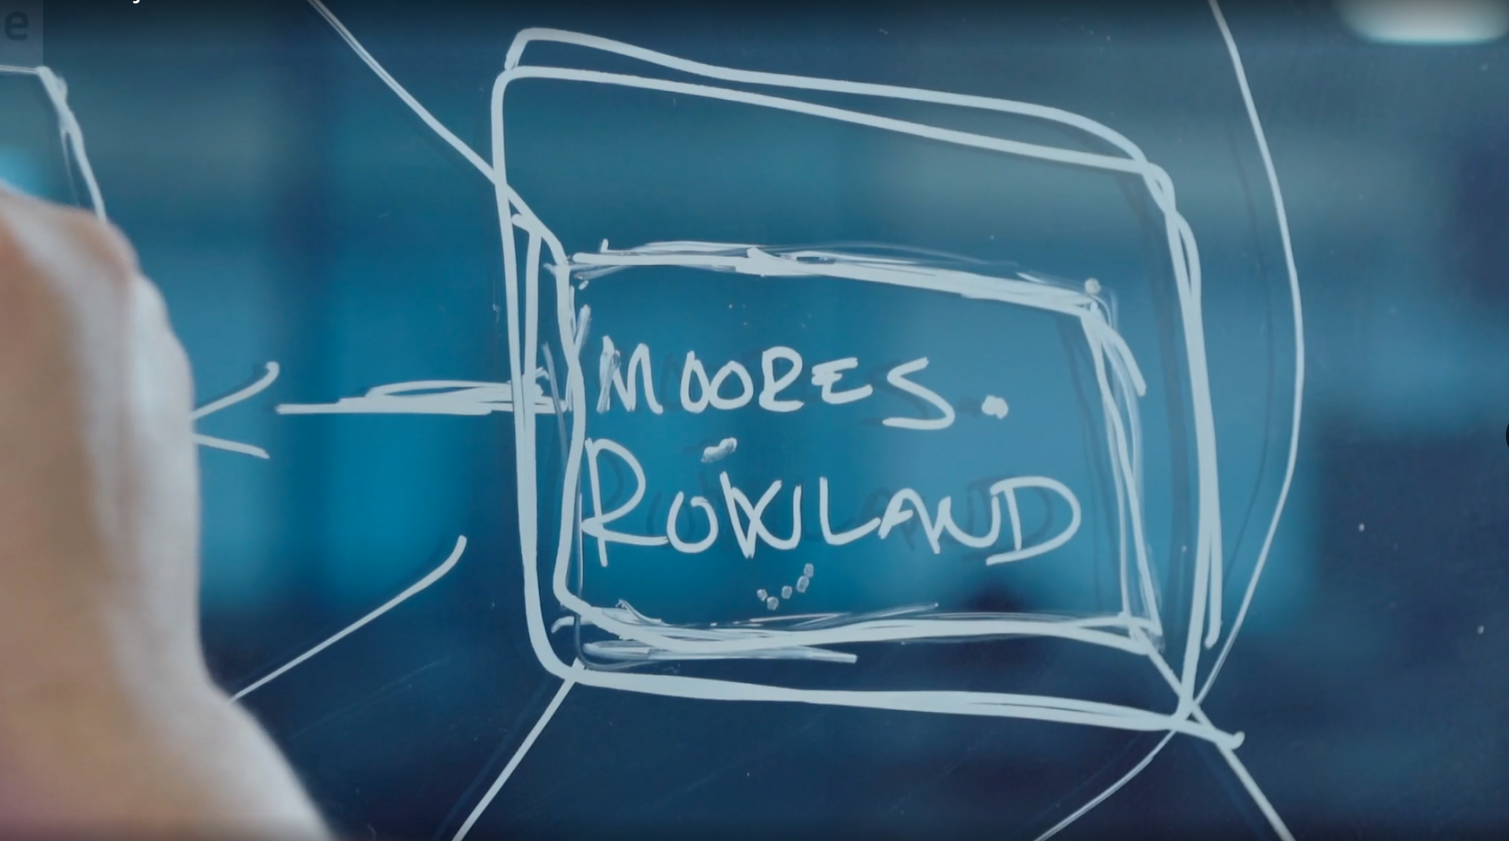 MOORES.
ROWLAND